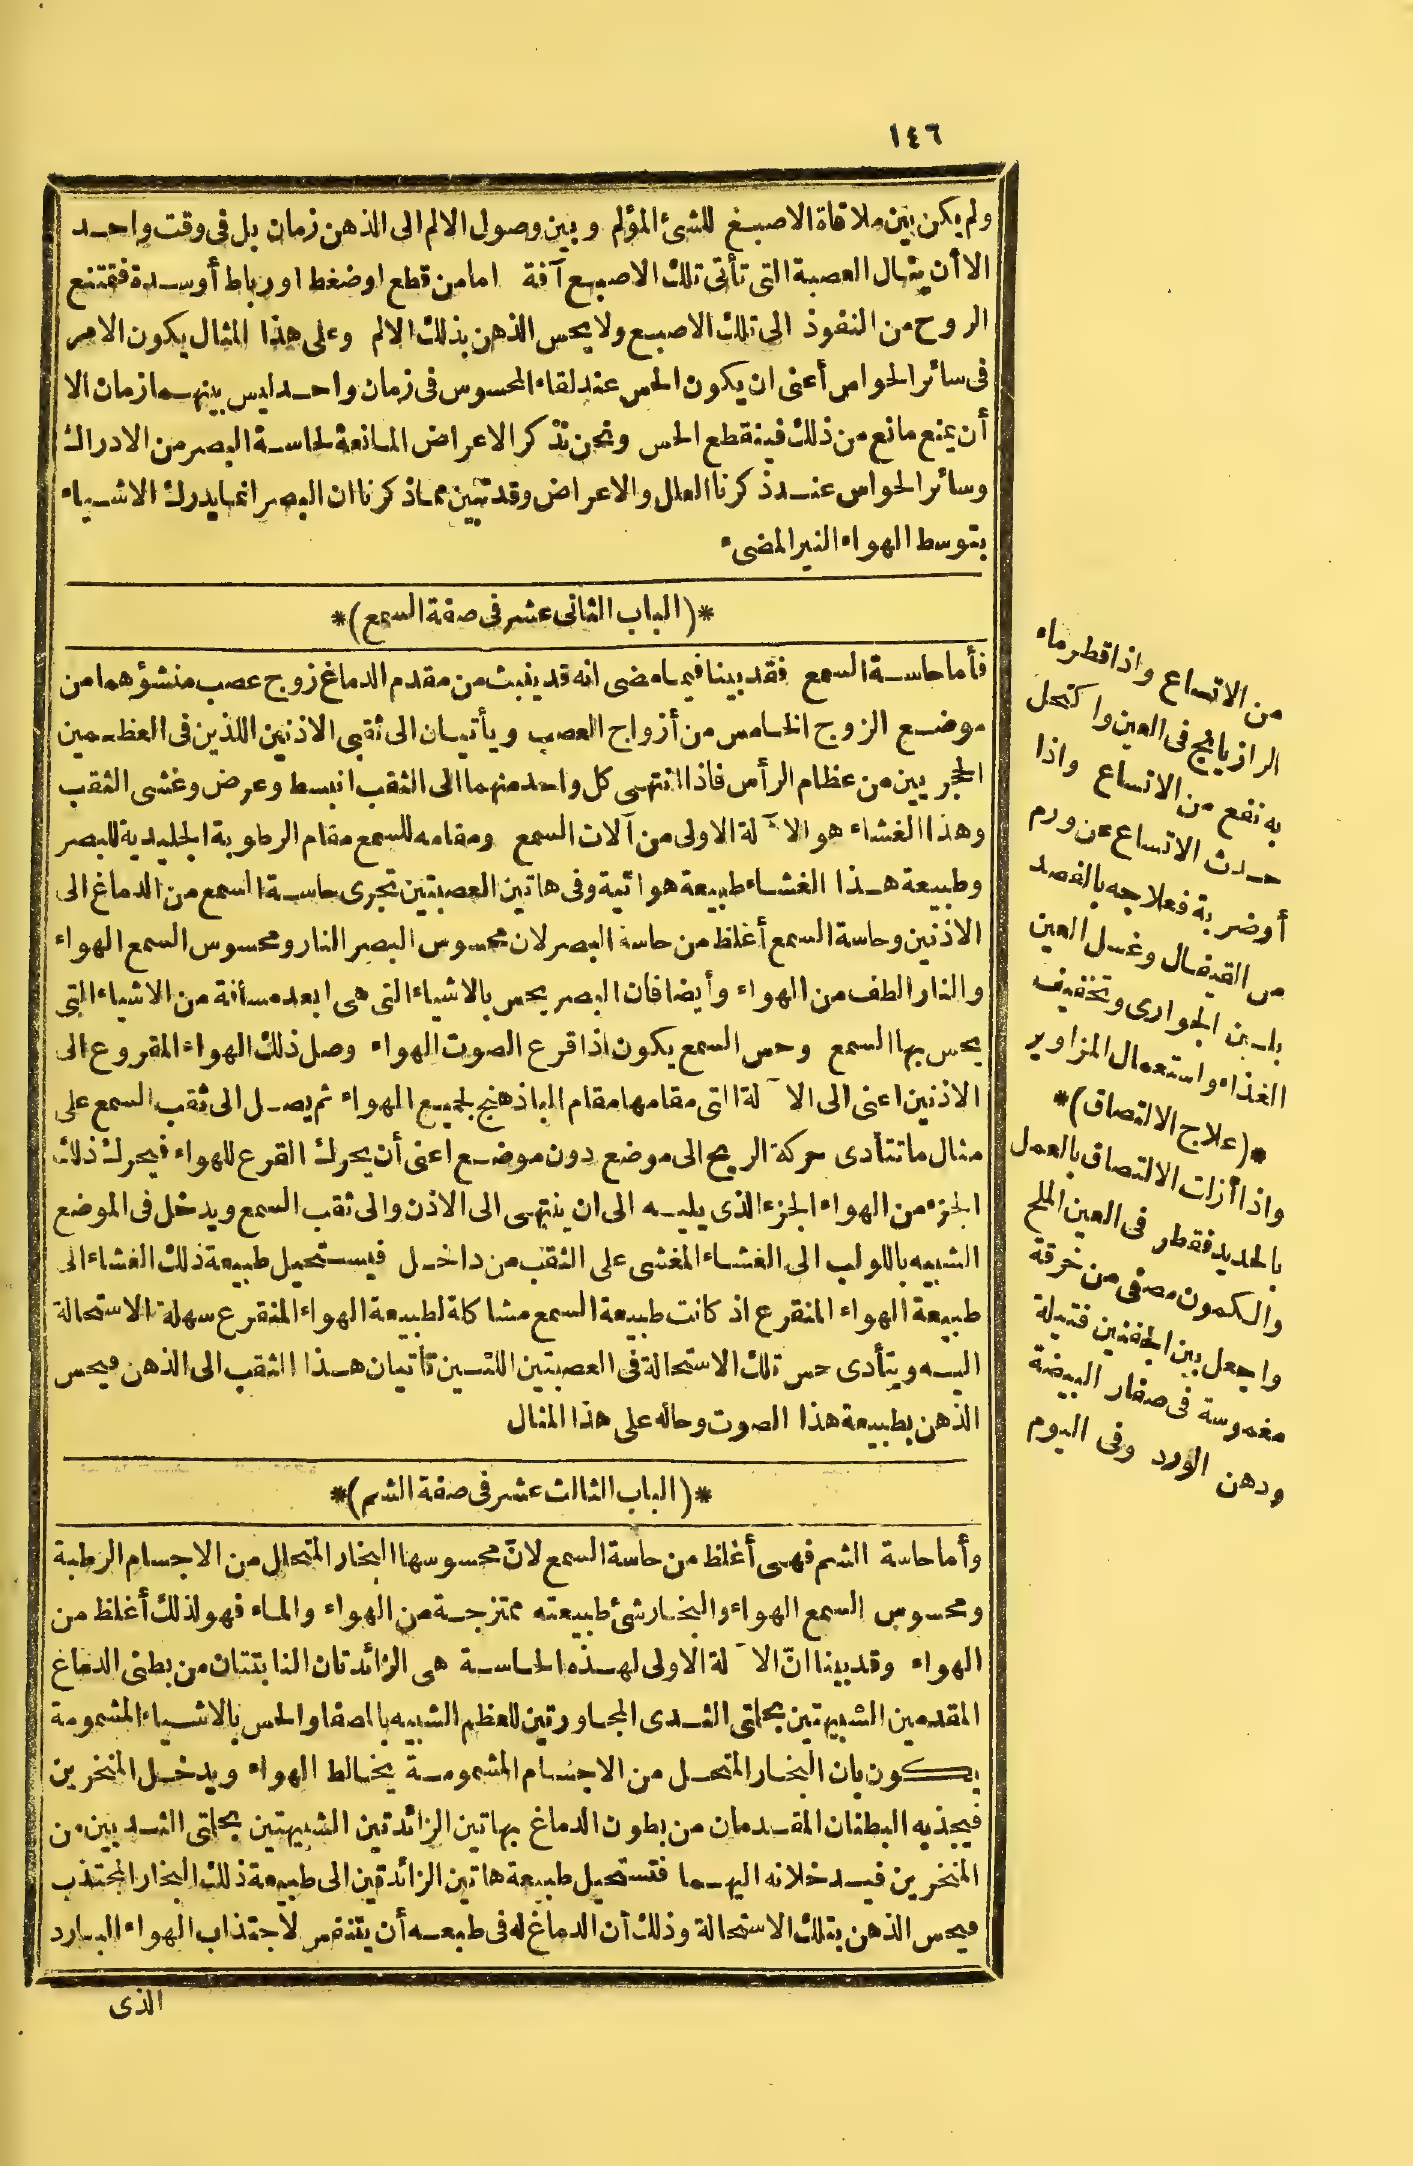 ١٤٦
ولم يكن بين ملاقاة الاصبغ للشئ المؤلم وبين وصول الالم الى الذهن زمان بل فى وقت واحد
الا أن ينال العصبة التى تأتى تلك الاصبع آفة اما من قطع او ضغط او رباط أوسدة فتمتنع
الروح من النفوذ الى تلك الاصبع ولا يحس الذهن بذلك الالم وعلى هذا المثال يكون الامر
فى سائر الحواس أعنى ان يكون الحس عند لقاء المحسوس فى زمان واحد ليس بينهما زمان الا
أن يمنع مانع من ذلك فينقطع الحس ونحن نذكر الاعراض المانعة لحاسة البصر من الادراك
وسائر الحواس عند ذكرنا العلل والاعراض وقد تبين مماذ كرنا ان البصر انما يدرك الاشياء
بتوسط الهواء النير المضىء
*(الباب الثانى عشر فى صفة السمع)*
فأما حاسة السمع فقد بينا فيما مضى انه قد ينبت من مقدم الدماغ زوج عصب منشؤهما من
موضع الزوج الخامس من أزواج العصب ويأتيان الى ثقبى الاذنين اللذين فى العظمين
الحجريين من عظام الرأس فاذا انتهى كل واحد منهما الى الثقب انبسط وعرض وغشى الثقب
وهذا الغشاء هو الآلة الاولى من آلات السمع ومقامه للسمع مقام الرطوبة الجليدية للبصر
وطبيعة هذا الغشاء طبيعة هوائية وفى هاتين العصبتين تجرى حاسة السمع من الدماغ الى
الاذنين وحاسة السمع أغلظ من حاسة البصر لان محسوس البصر النار ومحسوس السمع الهواء
والنار الطف من الهواء وأيضا فان البصر يحس بالاشياء التى هى ابعد مسافة من الاشياء التى
يحس بها السمع وحس السمع يكون اذا قرع الصوت الهواء وصل ذلك الهواء المقروع الى
الاذنين اعنى الى الآلة التى مقامها مقام الباذهنج لجميع الهواء ثم يصل الى ثقب السمع على
مثال ما تتأدى حركة الريح الى موضع دون موضع اعنى أن يحرك القرع للهواء فيحرك ذلك
الجزء من الهواء الجزء الذى يليه الى ان ينتهى الى الاذن والى ثقب السمع ويدخل فى الموضع
الشبيه باللولب الى الغشاء المغشى على الثقب من داخل فيستحيل طبيعة ذلك الغشاء الى
طبيعة الهواء المنقرع اذ كانت طبيعة السمع مشاكلة لطبيعة الهواء المنقرع سهلة الاستحالة
اليه ويتأدى حس تلك الاستحالة فى العصبتين اللتين تأتيان هذا الثقب الى الذهن فيحس
الذهن بطبيعة هذا الصوت وحاله على هذا المثال
*(الباب الثالث عشر فى صفة الشم)*
وأما حاسة الشم فهى أغلظ من حاسة السمع لانّ محسوسها البخار المتحلل من الاجسام الرطبة
ومحسوس السمع الهواء والبخار شئ طبيعته ممتزجة من الهواء والماء فهو لذلك أغلظ من
الهواء وقد بينا انّ الآلة الاولى لهذه الحاسة هى الزائدتان النابتتان من بطنى الدماغ
المقدمين الشبيهتين بحلمتى الثدى المجاورتين للعظم الشبيه بالمصفاو الحس بالاشياء المشمومة
يكون بان البخار المتحل من الاجسام المشمومة يخالط الهواء ويدخل المنخرين
فيجذبه البطنان المقدمان من بطون الدماغ بهاتين الزائدتين الشبيهتين بحلتى الثديين من
المنخرين فيدخلانه اليهما فتستحيل طبيعة هاتين الزائدتين الى طبيعة ذلك البخار المجتذب
فيحس الذهن بتلك الاستحالة وذلك أن الدماغ له فى طبعه أن يتنفس لاجتذاب الهواء البارد
الذى
من الاتساع واذا قطر ماء
الرازيانج فى العين واكتحل
به نفع من الاتساع واذا
حدث الاتساع عن ورم
أوضربة فعلاجه بالفصد
من القيفال وغسل العين
بلبن الجوارى وتخفيف
الغذاء واستعمال المزاوير
*(علاج الالتصاق)*
واذا أزلت الالتصاق بالعمل
بالحديد فقطر فى العين الملح
والكمون مصفى من خرقة
واجعل بين الجفنين فتيلة
مغموسة فى صفار البيضة
ودهن الورد وفى اليوم